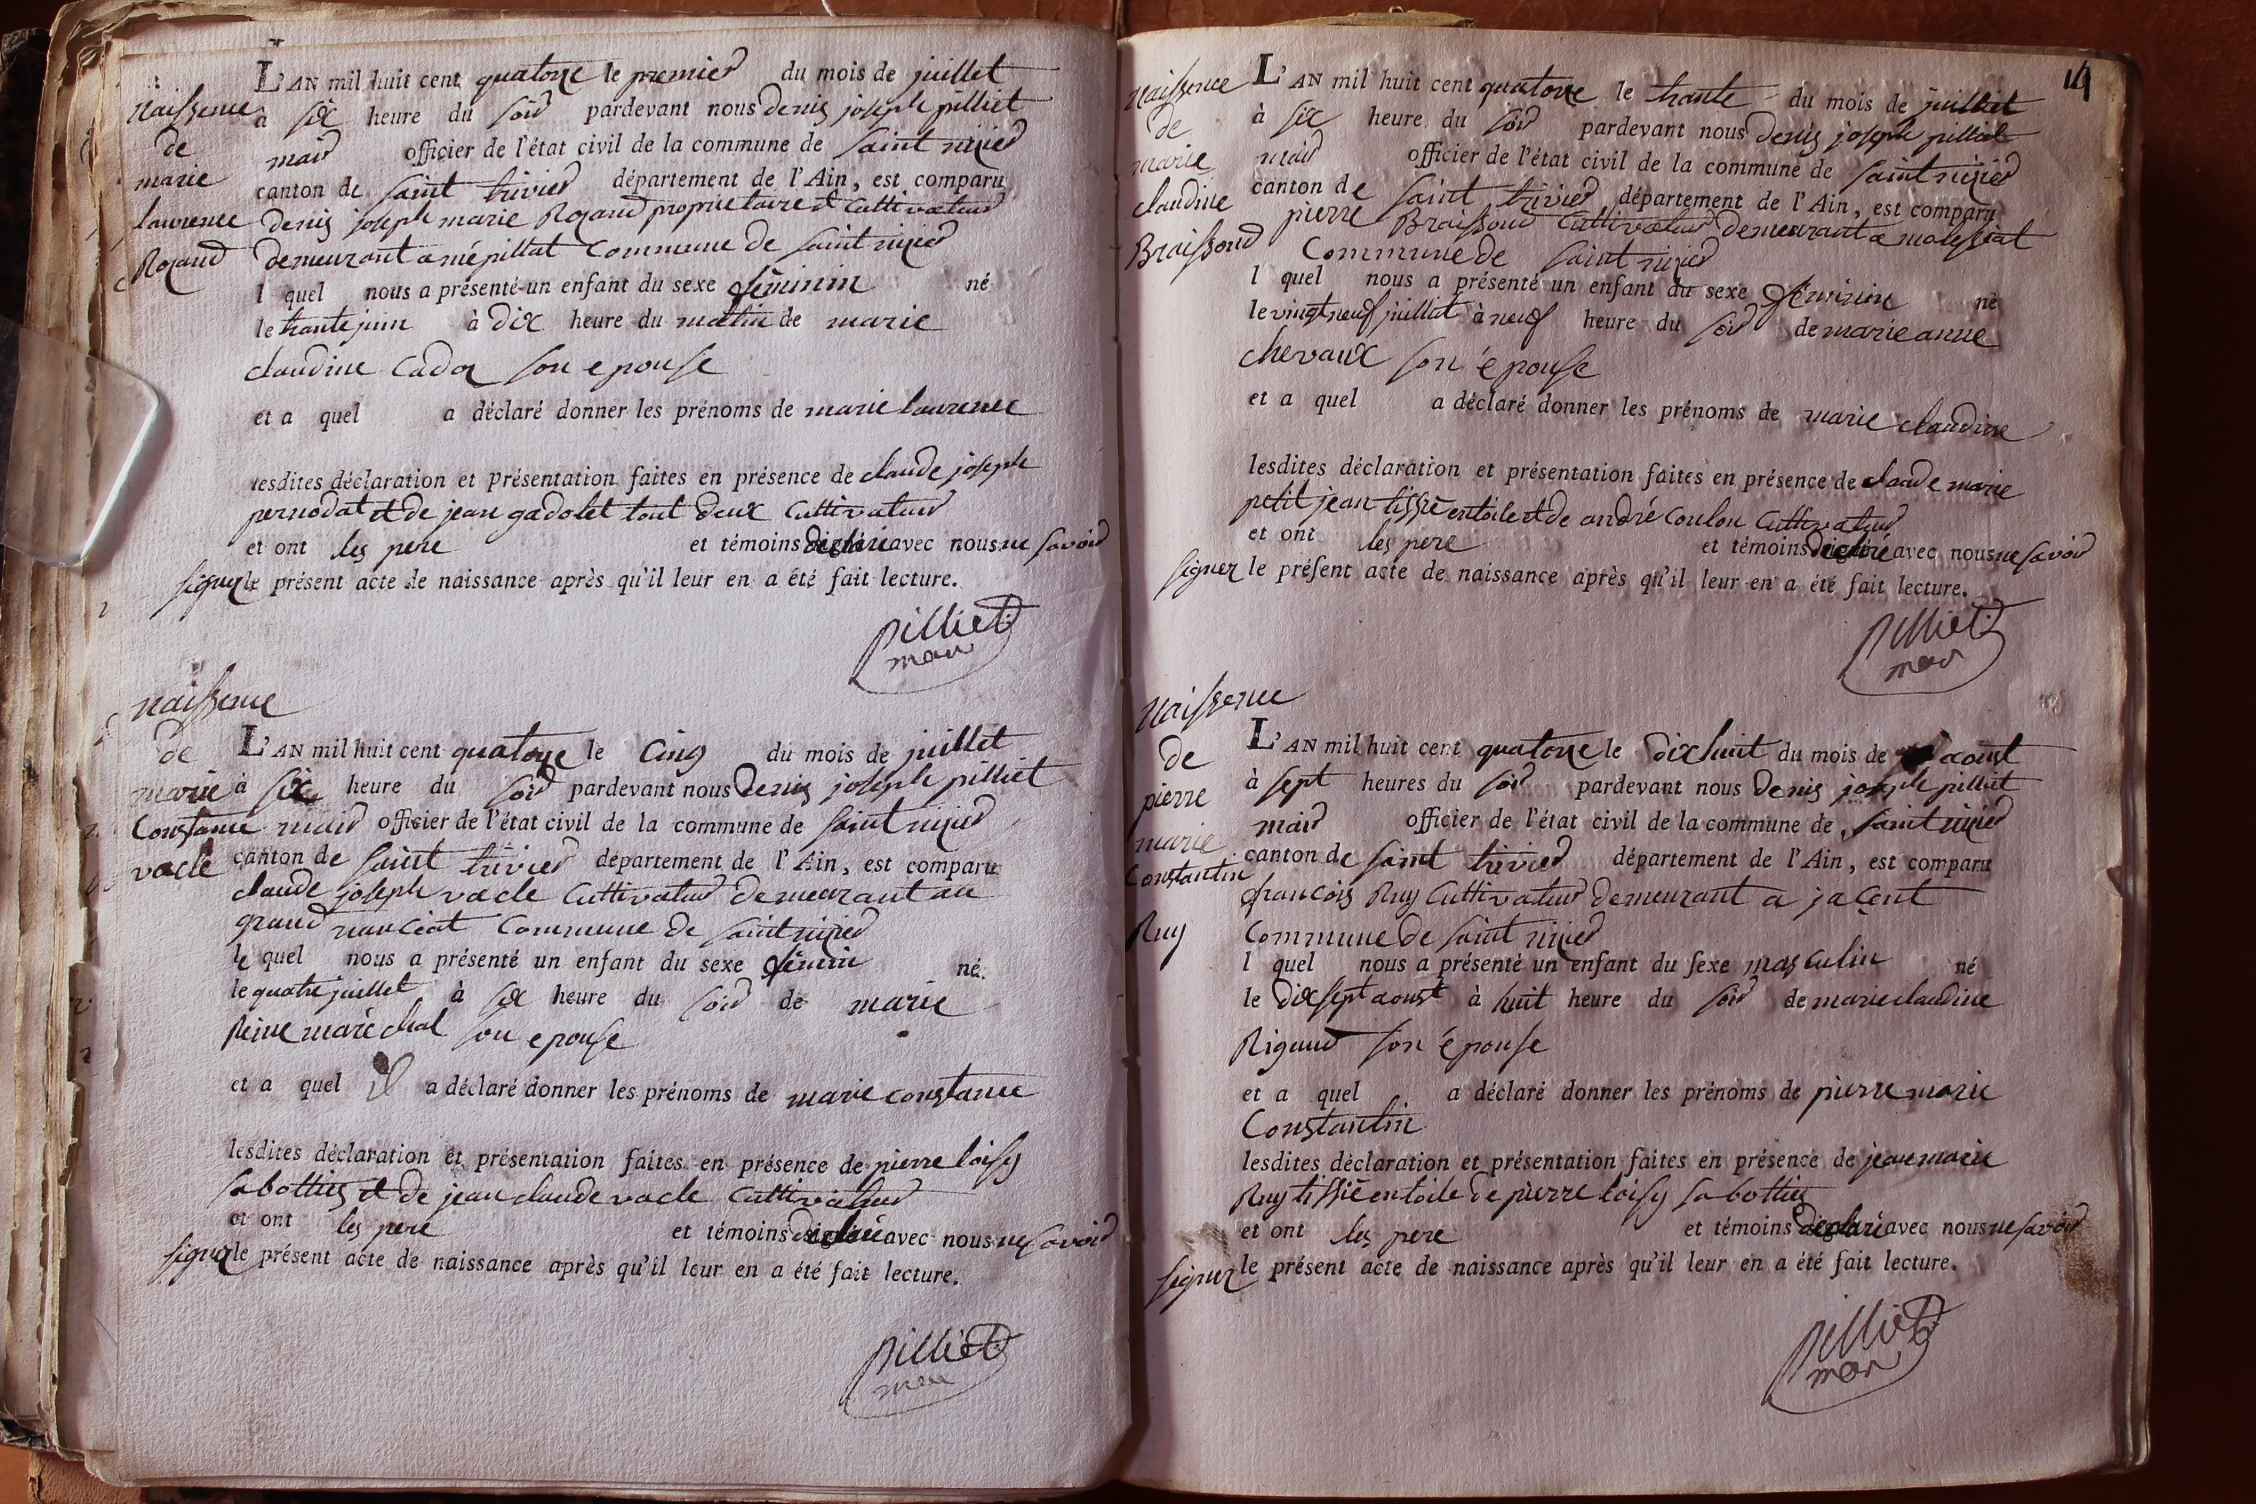 Naissence
de
marie
laurence
Rozand
L'AN mil huit cent quatorze le premier du mois de juillet
à six heure du soir pardevant nous denis joseph pilliet
mair officier de l'état civil de la commune de saint nizier
canton de saint trivier département de l'Ain, est comparu
denis joseph marie Rozand proprietaire et cultivateur
demeurant a mépillat commune de saint nizier
l quel nous a présenté un enfant du sexe féminin né
le trante juin à dix heure du matin de marie
claudine Cador son epouse
et a quel a déclaré donner les prénoms de marie laurence
lesdites déclaration et présentation faites en présence de claude joseph
pernodat et de jean gadolet tout deux cultivateur
et ont les pere et témoins declaré avec nous ne savoir
signer le présent acte de naissance après qu'il leur en a été fait lecture.
pilliet
mair
Naissence
de
marie
Constance
vacle
L'AN mil huit cent quatorze le cinq du mois de juillet
à six heure du soir pardevant nous denis joseph pilliet
mair officier de l'état civil de la commune de saint nizier
canton de saint trivier département de l'Ain, est comparu
claude joseph vacle cultivateur demeurant au
grand nanciat commune de saint nizier
le quel nous a présenté un enfant du sexe féminin né
le quatre juillet à six heure du soir de marie
Reine maréchal son epouse
et a quel il a déclaré donner les prénoms de marie constance
lesdites déclaration et présentation faites en présence de pierre loisy
sabottier et de jean claude vacle cultivateur
et ont les pere et témoins declaré avec nous ne savoir
signer le présent acte de naissance après qu'il leur en a été fait lecture.
pilliet
mair
14
Naissence
de
marie
claudine
Braissoud
L'AN mil huit cent quatorze le trante du mois de juilliet
à six heure du soir pardevant nous denis joseph pilliet
mair officier de l'état civil de la commune de saint nizier
canton de saint trivier département de l'Ain, est comparu
pierre Braissoud cultivateur demeurant a molessiat
Commune de saint nizier
l quel nous a présenté un enfant du sexe féminin né
le vingt neuf juillat à neuf heure du soir de marie anne
chevaux son épouse
et a quel a déclaré donner les prénoms de marie claudine
lesdites déclaration et présentation faites en présence de claude marie
petit jean tissié en toile et de andré coulon cultivateur
et ont les pere et témoins declaré avec nous ne savoir
signer le présent acte de naissance après qu'il leur en a été fait lecture.
pilliet
mair
Naissence
de
pierre
marie
Constantin
Ruy
L'AN mil huit cent quatorze le dix huit du mois de aoust
à sept heures du soir pardevant nous denis joseph pilliet
mair officier de l'état civil de la commune de saint nizier
canton de saint trivier département de l'Ain, est comparu
francois Ruy cultivateur demeurant a jacent
Commune de saint nizier
l quel nous a présenté un enfant du sexe masculin né
le dix sept aoust à huit heure du soir de marie claudine
Rigaud son épouse
et a quel a déclaré donner les prénoms de pierre marie
Constantin
lesdites déclaration et présentation faites en présence de jean marie
Ruy tissié en toile de pierre loisy sabottier
et ont les pere et témoins declaré avec nous ne savoir
signer le présent acte de naissance après qu'il leur en a été fait lecture.
pilliet
mair